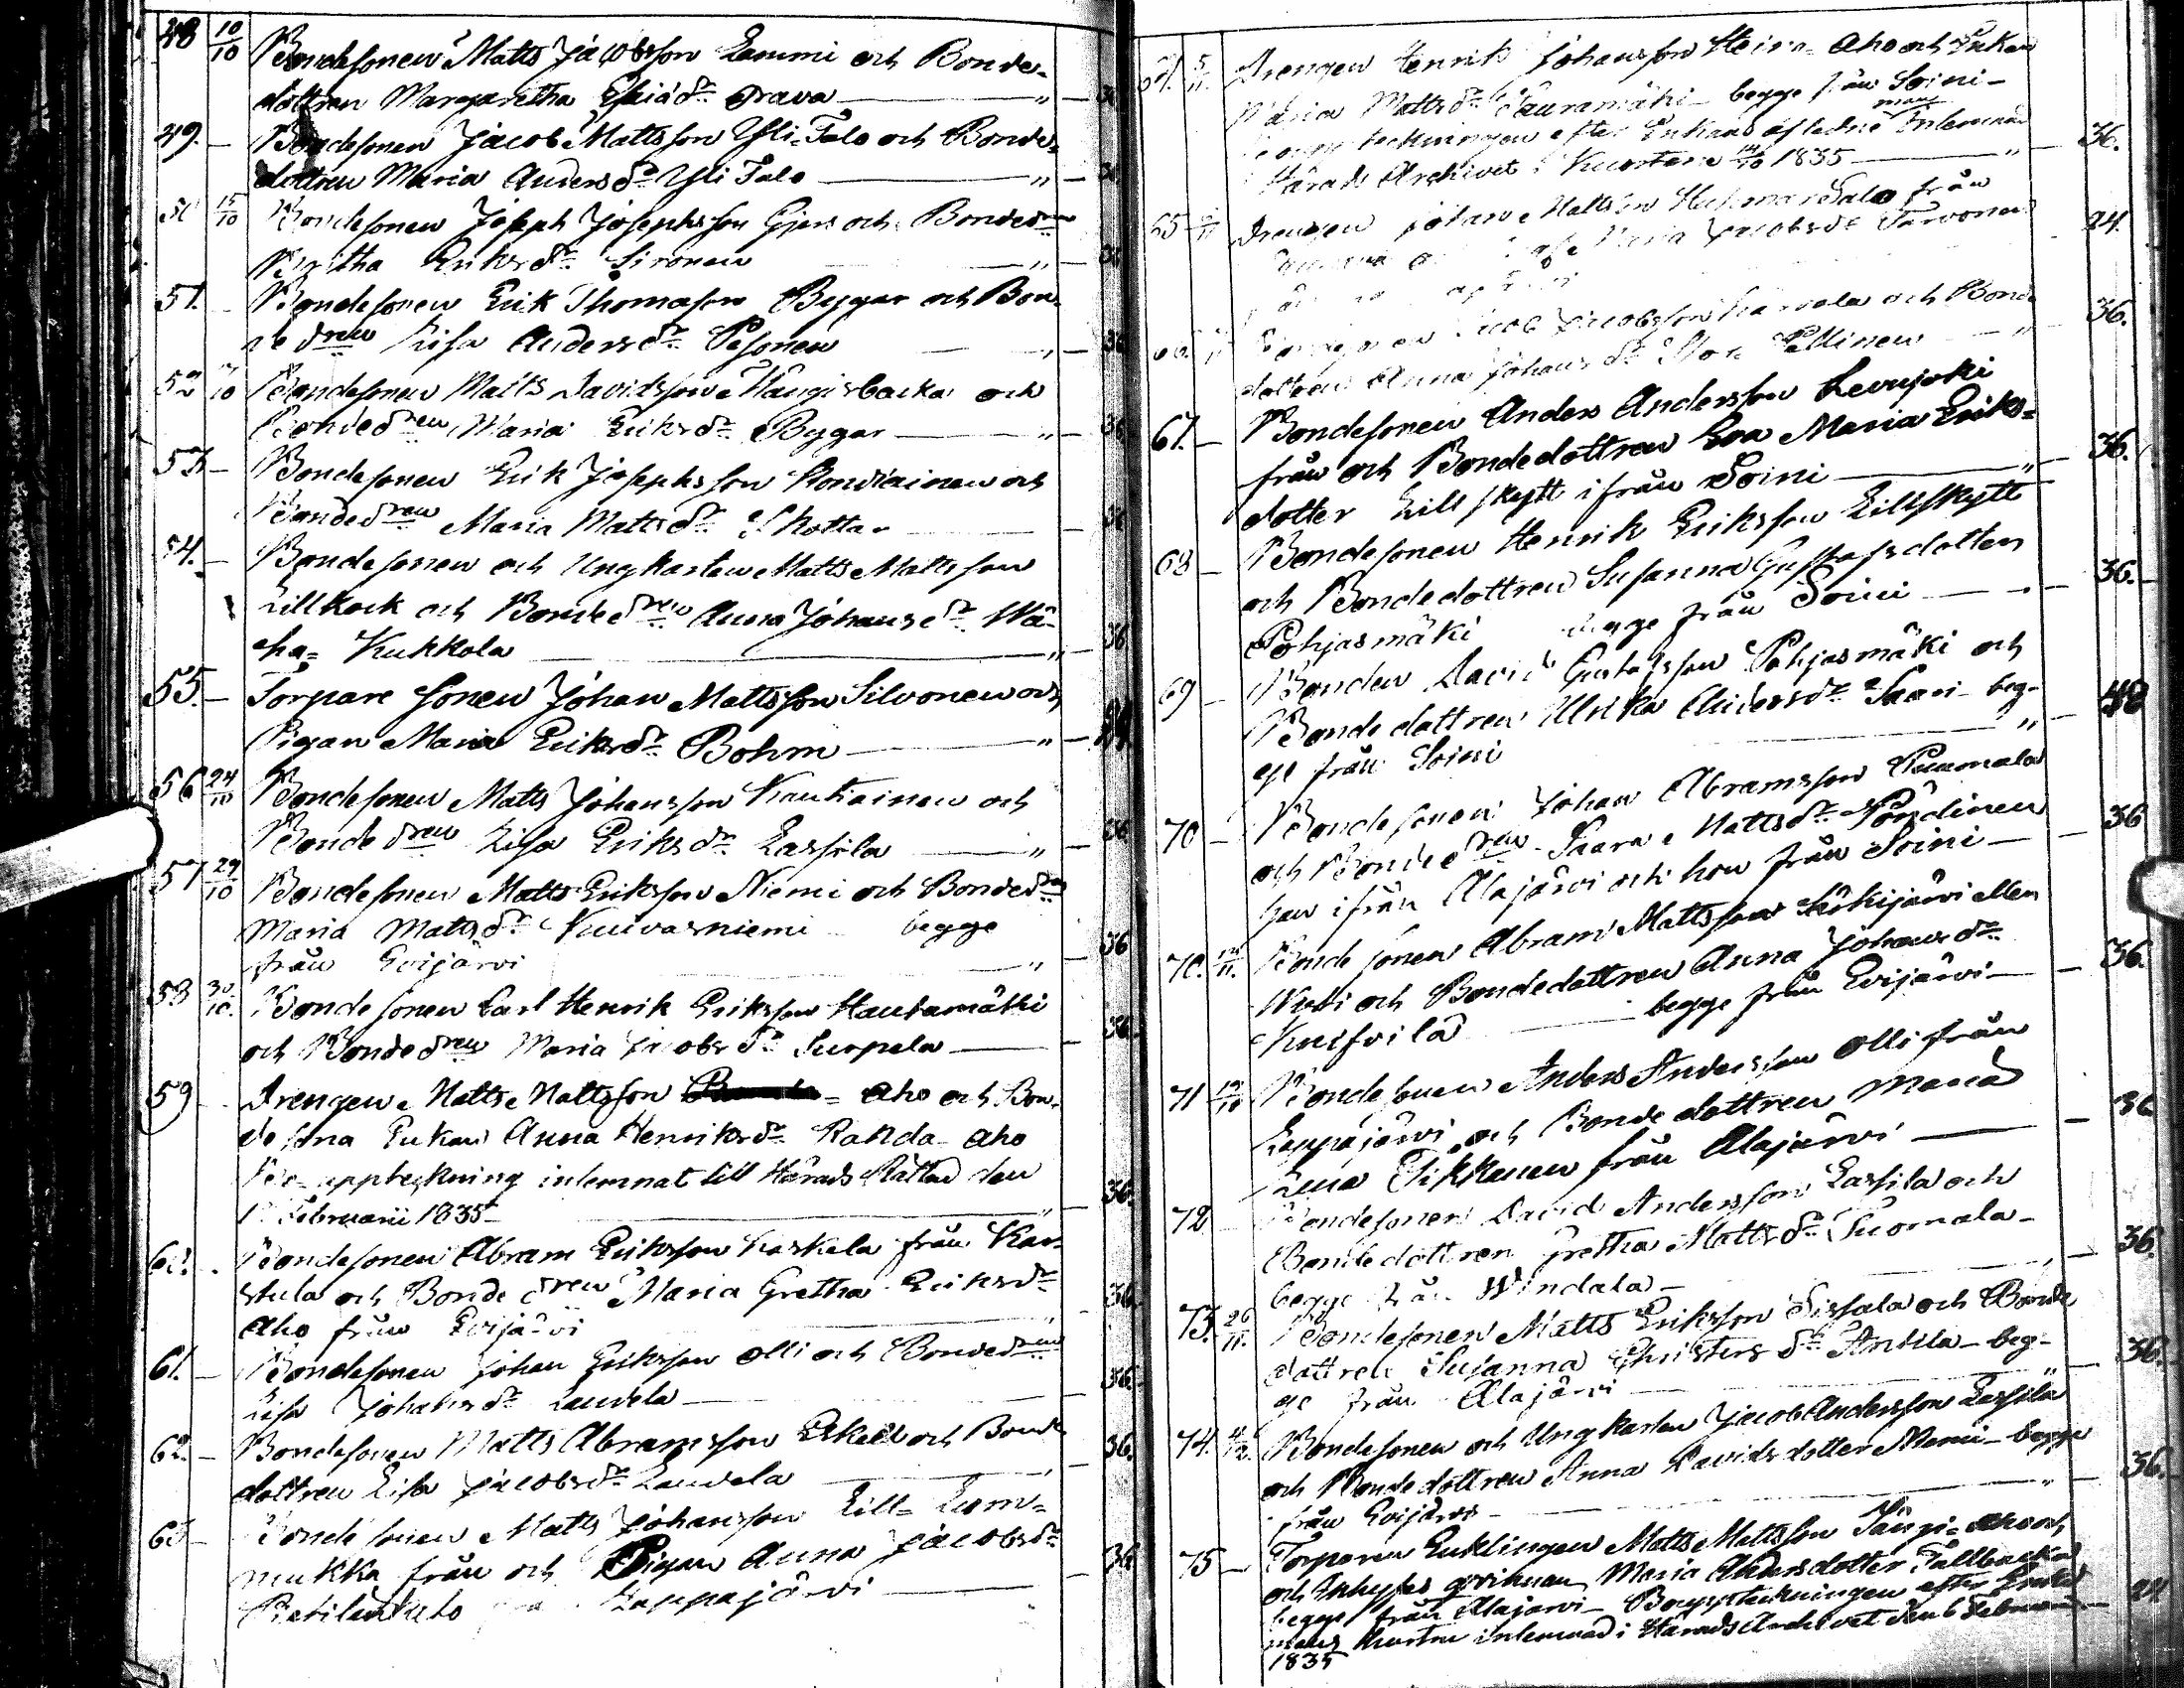 48 10/10 Bondesonen Matts Jacobsson Lammi och Bonde-
dottren Margaretha Esaiæ dr Orava — " — 36
49. — Bondesonen Jacob Mattsson Yli-Talo och Bonde-
dottren Maria Anders dr Yli Talo — " — 36
50 15/10 Bondesonen Joseph Josephsson Gjers och Bonde dren
Gretha Eriks dr Sironen — " — 36
51. — Bondesonen Erik Thomasson Byggar och Bon-
de dren Lisa Anders dr Pesonen — " — 36
52 /10 Bondesonen Matts Davidsson Haugisbacka och
Bonde dren Maria Eriks dr Byggar — " — 36
53 — Bondesonen Erik Josephsson Kondiainen och
Bonde dren Maria Matts dr Skottar — 36
54. — Bondesonen och Ungkarlen Matts Mattsson
Lillkock och Bonde dren Anna Johans dr Wä-
hä= Kukkola — " 36
55. — Torpare sonen Johan Mattsson Silvonen och
Pigan Maria Eriks dr Bohm — " — 24
56 24/10 Bondesonen Matts Johansson Kautiainen och
Bonde dren Lisa Eriks dr Lassila — " — 36
57 29/10 Bondesonen Matts Eriksson Niemi och Bonde dren
Maria Matts dr Kuivasniemi begge
från Evijärvi — " — 36
58 30/10. Bondesonen Carl Henrik Eriksson Hautamäki
och Bonde dren Maria Jacobs dr Surpela — 36
59 — Drengen Matts Mattsson = Aho och Bon-
de sona Enkan Anna Henriks dr Randa- aho
Bouppteckning inlemnat till Härads Rätten den
Februarii 1835 — " — 36.
60. — Bondesonen Abram Eriksson Kaskela från Kar-
stula och Bonde dren Maria Gretha Eriks dr
Aho från Evijärvi — " 36
61. — Bondesonen Johan Eriksson Olli och Bonde dren
Lisa Johans dr Lauvela — 36.
62. — Bondesonen Matts Abramsson Eskeli och Bonde
dottren Lisa Jacobs dr Lauvela — 36.
63 — Bonde sonen Matts Johansson Lill= Lam-
mukka från och Pigan Anna Jacobs dr
Lappajärvi — 36
64. 5/11. Drengen Henrik Johansson Heina- Aho och Enkan
Maria Matts dr Sauramäki — begge från Soini —
Bouppteckningen efter Enkans afledne man Inlemnad
Härads Archivet i Kuortane 14/10 1835 — " — 36.
65 /11 Drengen Johan Mattsson Huhmar Salo från
Maria Jacobs dr Tarvonen
24.
66. /11 Bondesonen Jacob Jacobsson Karvala och Bonde
dottren Anna Johans dr Stor Pellinen — " — 36.
67. — Bondesonen Anders Andersson Levijoki
från och Bondedottren Eva Maria Eriks-
dotter Lill skytt ifrån Soini — " — 36.
68 — Bondesonen Henrik Eriksson Lillskytt
och Bondedottren Susanna Gustafsdotter
Pohjasmäki begge från Soini — 36.
69 — Bonden David Gustafsson Pohjasmäki och
Bonde dottren Ulrika Anders dr Saari — beg-
ge från Soini — " — 48
70 — Bondesonen Johan Abramsson Puumala
och Bonde dren Saara Matts dr Pöndinen
han ifrån Alajärvi och hon från Soini — 36
70. /11. Bonde sonen Abram Mattsson Särkijärvi eller
Wuti och Bondedottren Anna Johans dr
Knifsila begge från Evijärvi — 36.
71 /10 Bondesonen Anders Andersson Olli från
Lappajärvi och Bonde dottren Maria
Lena Tikkanen från Alajärvi — 36
72 — Bondesonen David Andersson Lassila och
Bondedottren Gretha Matts dr Tuomala —
begge från Windala — " — 36.
73. 26/11. Bondesonen Matts Eriksson Sissala och Bonde
dottren Susanna Christers dr Anttila — beg-
ge från Alajärvi — " — 36.
74. /12. Bondesonen och Ungkarlen Jacob Andersson Lassila
och Bonde dottren Anna Davidsdotter Niemi — begge
från Evijärvi — " — 36.
75 — Torparen Enklingen Matts Mattsson Tängi- aho och
och Inhyses qvinnan Maria Andersdotter Tallbacka
begge från Alajärvi — Bouppteckningen efter
mans Hustru inlemnad i Härads Archivet den 6 Februarii — 24
1835